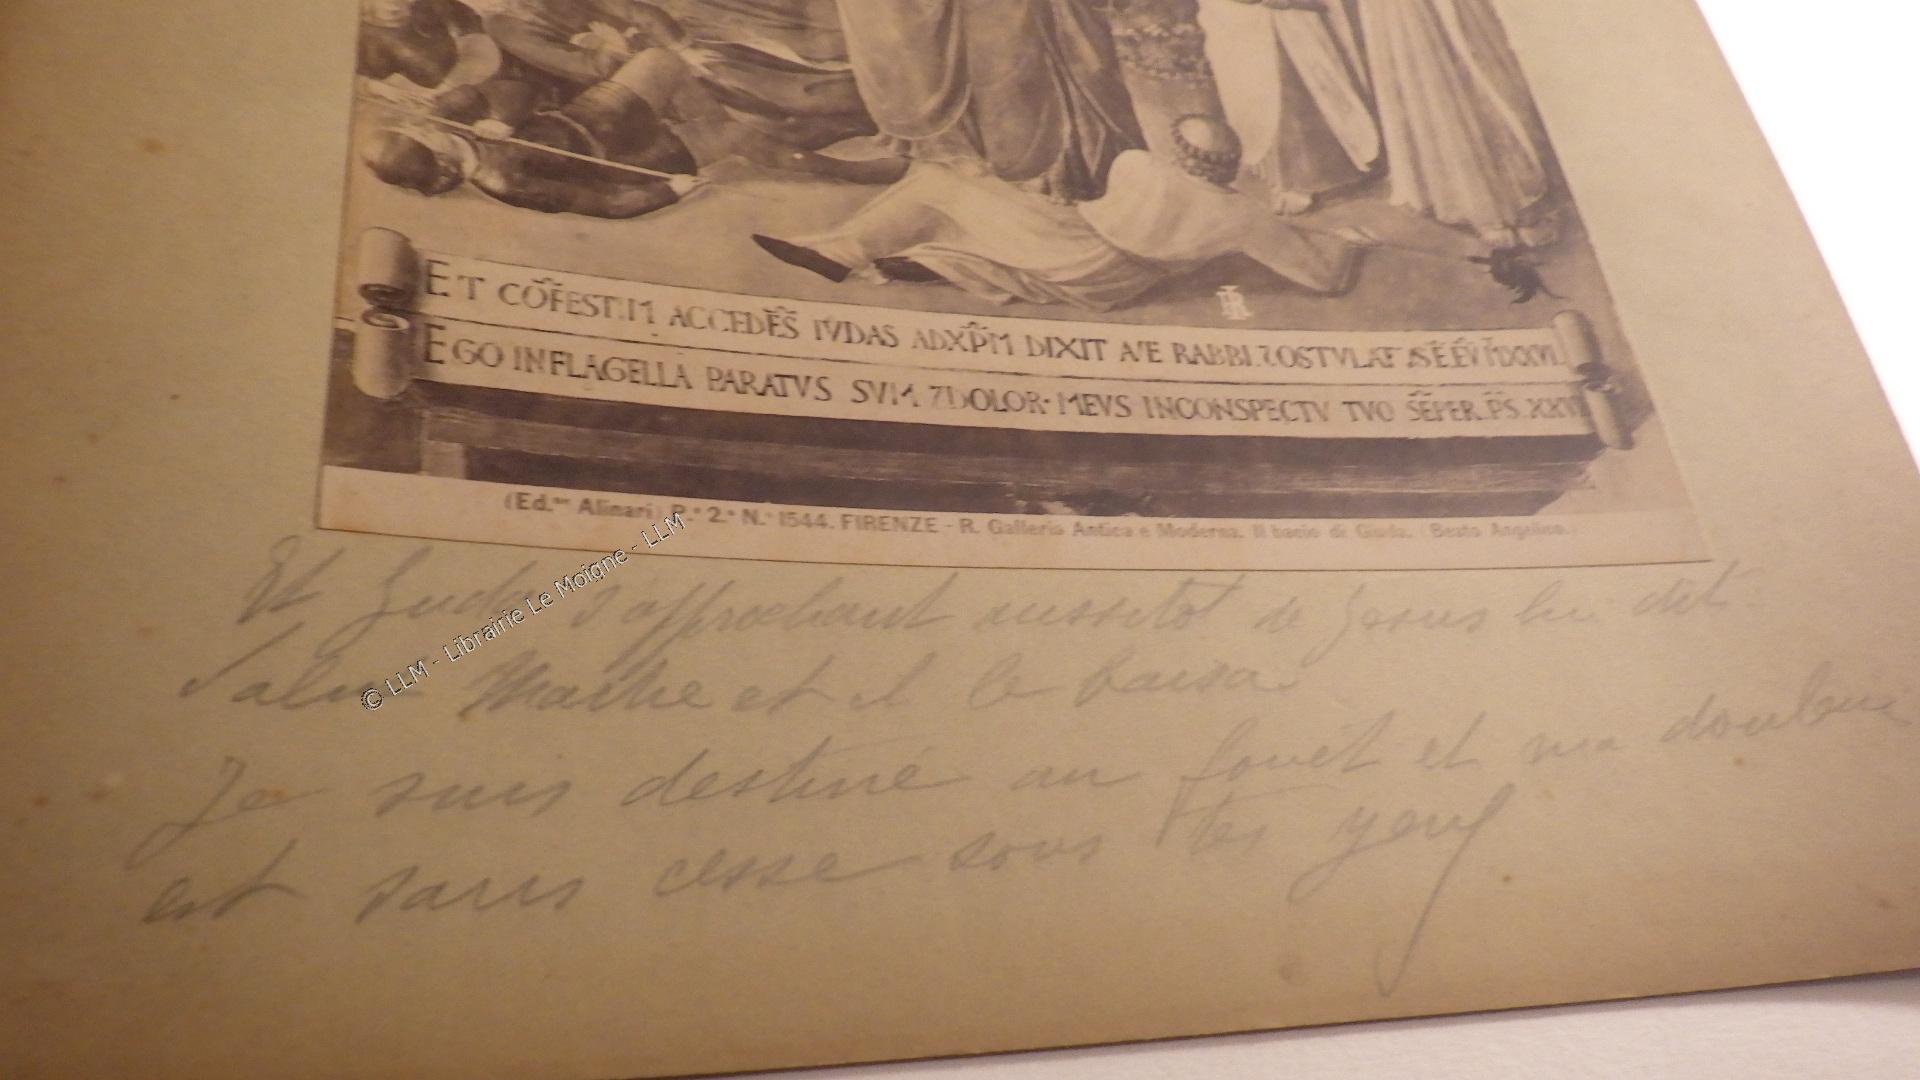 ET CŌFESTIM ACCEDĒS IVDAS ADXP̄M DIXIT AVE RABBI. 7 OSTVLAT
EGO IN FLAGELLA PARATVS SVM 7 DOLOR·MEVS INCONSPECTV TVO SĒPER. P̄S. XXVII
(Ed.ne Alinari) P.e 2.a N.o 1544. FIRENZE - R. Galleria Antica e Moderna. Il bacio di Giuda. (Beato Angelico.)
Et Juda s'approchant aussitôt de Jesus lui dit
Salut Maitre et il le baisa.
Je suis destiné au fouët et ma douleur
est sans cesse sous tes yeux
© LLM - Librairie Le Moigne - LLM